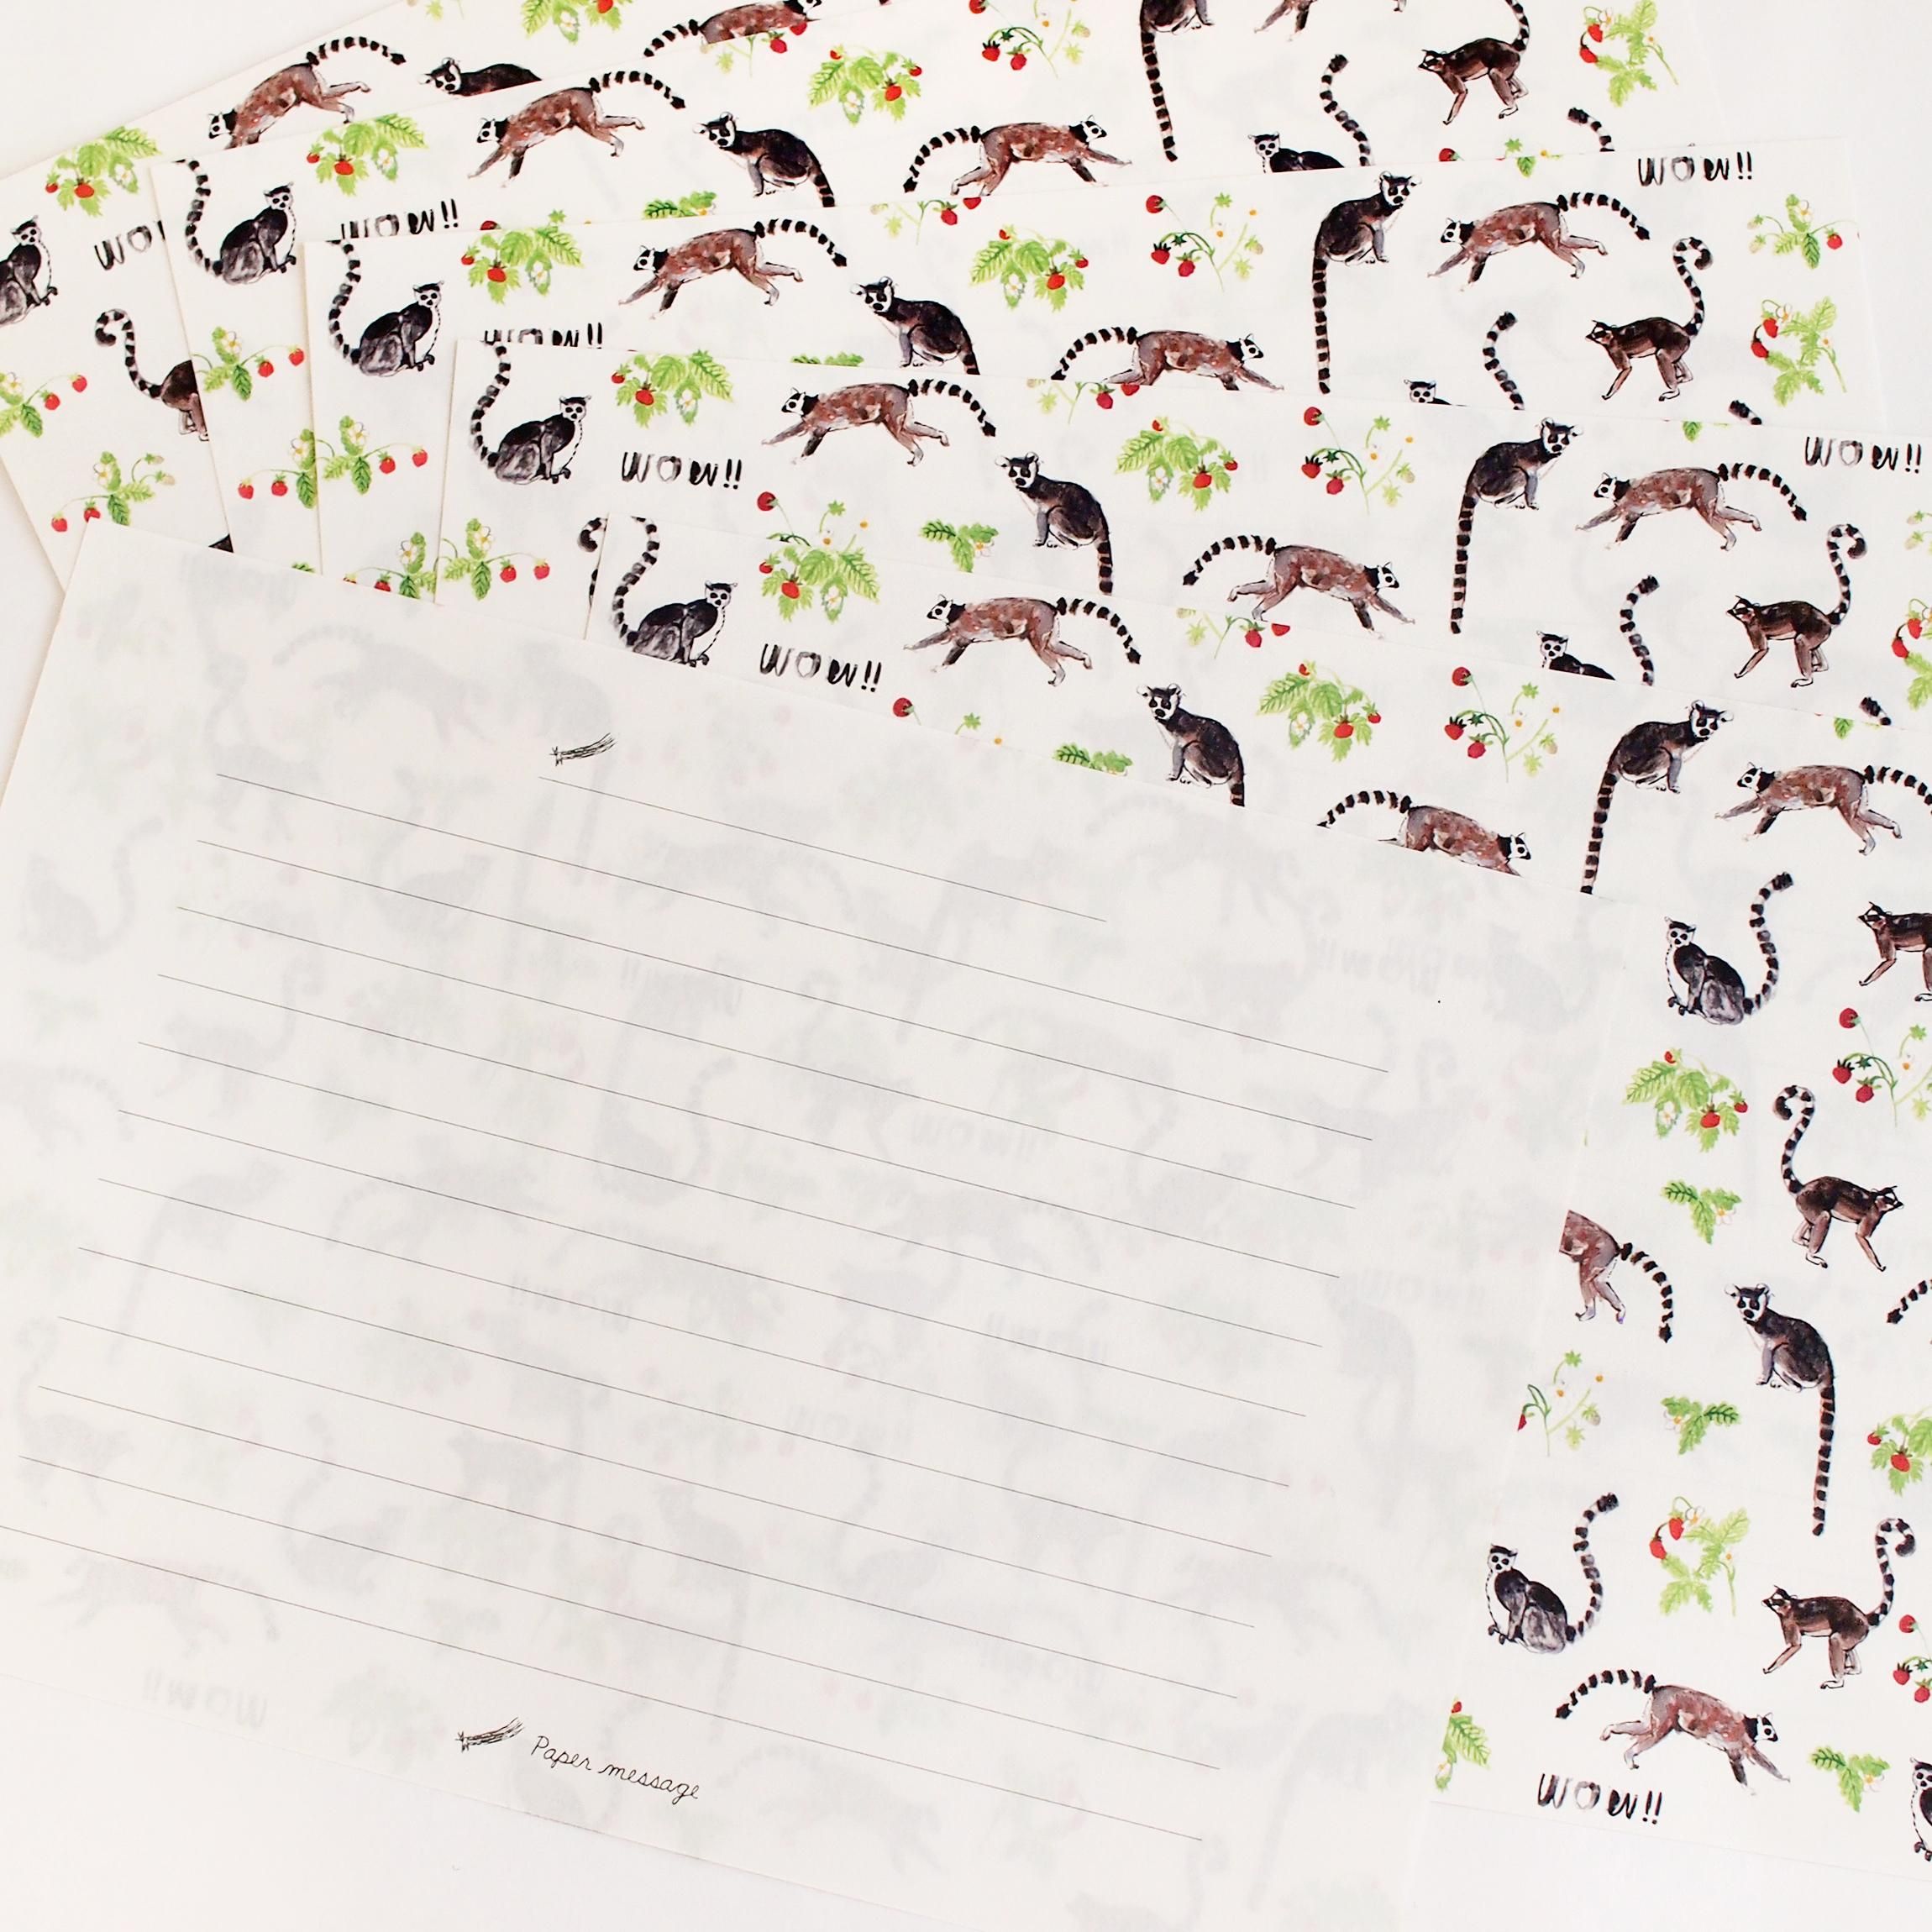 WOW!!
WOW!!
WO
WOW!!
WOW!!
WOW!!
WOW!!
Paper message
WOW!!